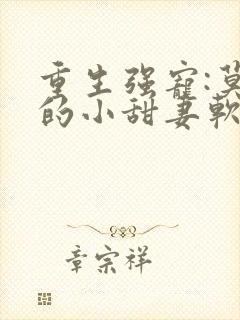 重生强寵:
的小甜妻軟
章宗祥